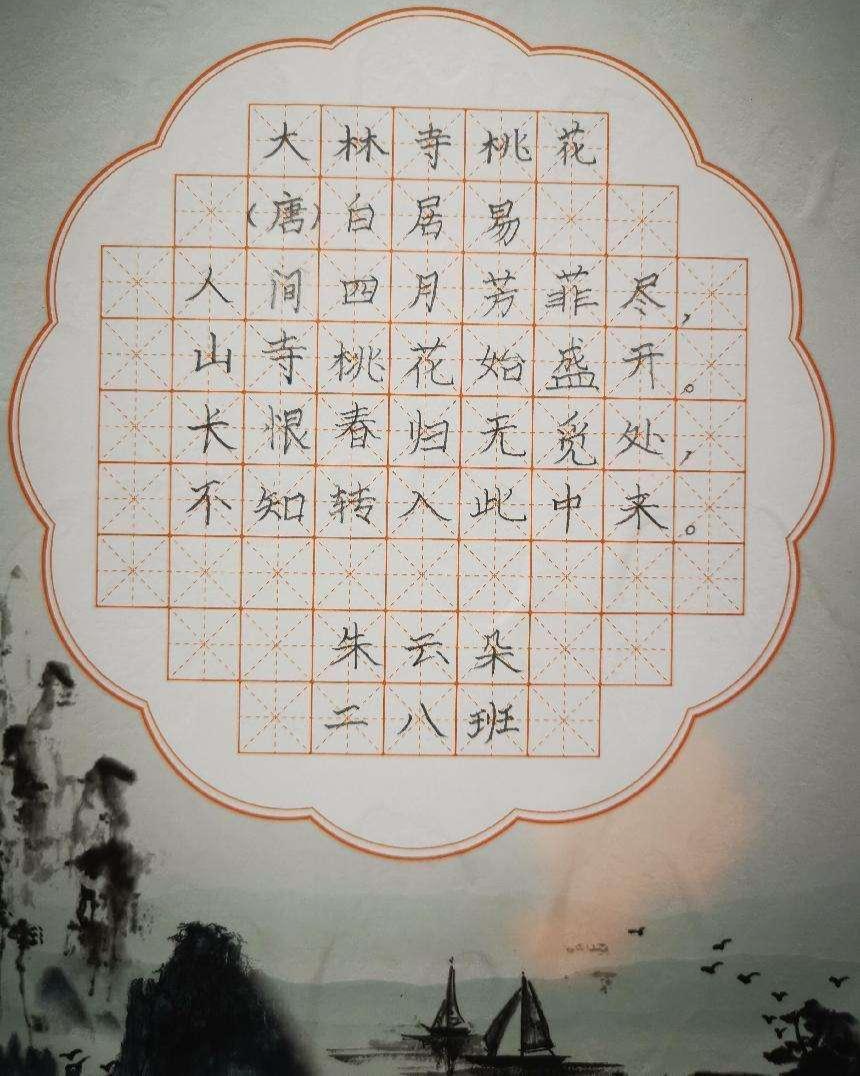 大林寺桃花
(唐)白居易
人间四月芳菲尽,
山寺桃花始盛开。
长恨春归无觅处,
不知转入此中来。
朱云朵
二八班